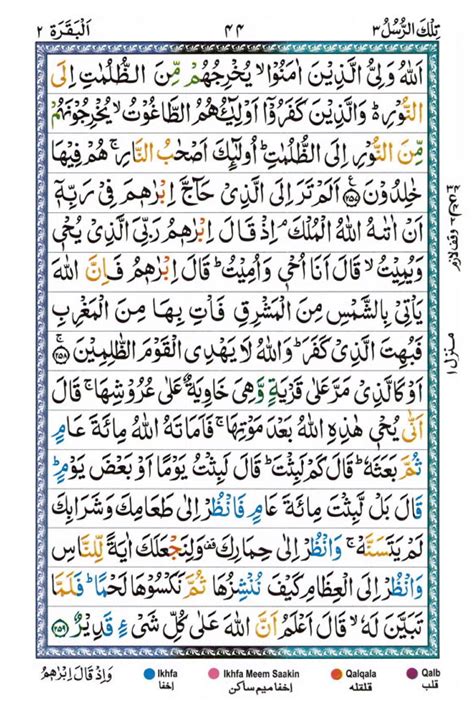 تِلْكَ الرُّسُلُ ٣ ٤٤ اَلْبَقَرَة ٢
اَللّٰهُ وَلِيُّ الَّذِيْنَ اٰمَنُوْا ۙ يُخْرِجُهُمْ مِّنَ الظُّلُمٰتِ اِلَى
النُّوْرِ ۬ؕ وَالَّذِيْنَ كَفَرُوْۤا اَوْلِيٰٓـُٔهُمُ الطَّاغُوْتُ ۙ يُخْرِجُوْنَهُمْ
مِّنَ النُّوْرِ اِلَى الظُّلُمٰتِ ؕ اُولٰٓئِكَ اَصْحٰبُ النَّارِ ۚ هُمْ فِيْهَا
خٰلِدُوْنَ ﴿٢٥٧﴾ اَلَمْ تَرَ اِلَى الَّذِيْ حَآجَّ اِبْرٰهٖمَ فِيْ رَبِّهٖۤ
اَنْ اٰتٰىهُ اللّٰهُ الْمُلْكَ ۘ اِذْ قَالَ اِبْرٰهٖمُ رَبِّيَ الَّذِيْ يُحْيٖ
وَيُمِيْتُ ۙ قَالَ اَنَا اُحْيٖ وَاُمِيْتُ ؕ قَالَ اِبْرٰهٖمُ فَاِنَّ اللّٰهَ
يَاْتِيْ بِالشَّمْسِ مِنَ الْمَشْرِقِ فَاْتِ بِهَا مِنَ الْمَغْرِبِ
فَبُهِتَ الَّذِيْ كَفَرَ ؕ وَاللّٰهُ لَا يَهْدِي الْقَوْمَ الظّٰلِمِيْنَ ﴿٢٥٨﴾
اَوْ كَالَّذِيْ مَرَّ عَلٰى قَرْيَةٍ وَّهِيَ خَاوِيَةٌ عَلٰى عُرُوْشِهَا ۚ قَالَ
اَنّٰى يُحْيٖ هٰذِهِ اللّٰهُ بَعْدَ مَوْتِهَا ۚ فَاَمَاتَهُ اللّٰهُ مِائَةَ عَامٍ
ثُمَّ بَعَثَهٗ ؕ قَالَ كَمْ لَبِثْتَ ؕ قَالَ لَبِثْتُ يَوْمًا اَوْ بَعْضَ يَوْمٍ ؕ
قَالَ بَلْ لَّبِثْتَ مِائَةَ عَامٍ فَانْظُرْ اِلٰى طَعَامِكَ وَشَرَابِكَ
لَمْ يَتَسَنَّهْ ۚ وَانْظُرْ اِلٰى حِمَارِكَ ۟ وَلِنَجْعَلَكَ اٰيَةً لِّلنَّاسِ
وَانْظُرْ اِلَى الْعِظَامِ كَيْفَ نُنْشِزُهَا ثُمَّ نَكْسُوْهَا لَحْمًا ؕ فَلَمَّا
تَبَيَّنَ لَهٗ ۙ قَالَ اَعْلَمُ اَنَّ اللّٰهَ عَلٰى كُلِّ شَيْءٍ قَدِيْرٌ ﴿٢٥٩﴾
وقف لازم
منزل ١
وَاِذْ قَالَ اِبْرٰهٖمُ
Ikhfa
اخفا
Ikhfa Meem Saakin
اخفا ميم ساكن
Qalqala
قلقله
Qalb
قلب